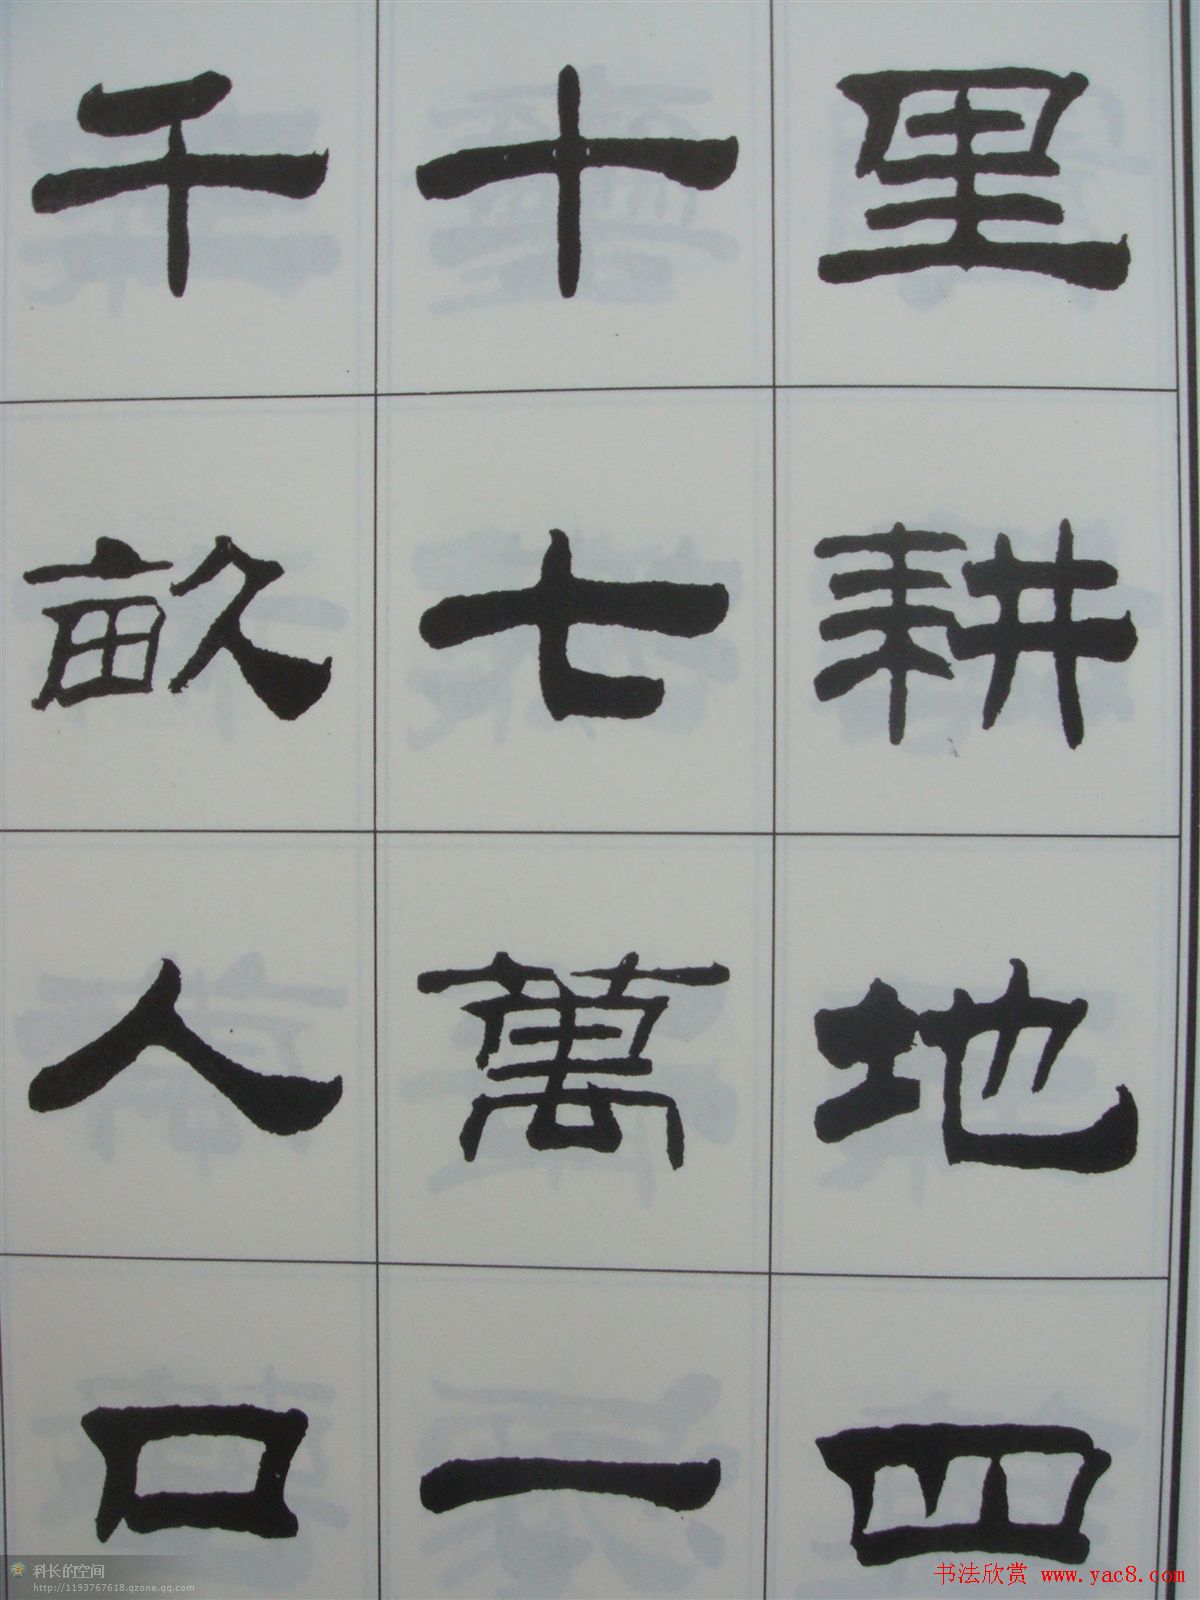 里耕地四
十七萬一
千畝人口
科长的空间
http://1193767618.qzone.qq.com
书法欣赏 www.yac8.com